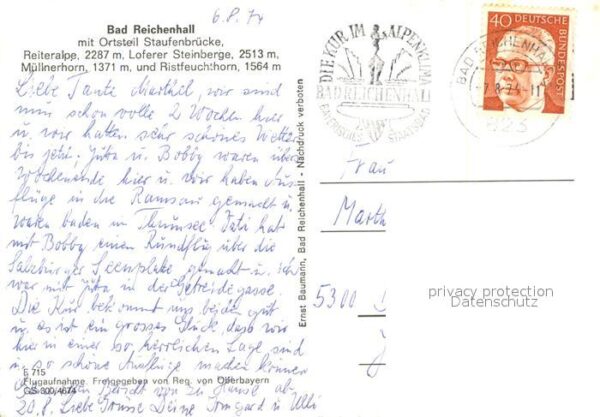 6.8.74
Bad Reichenhall
mit Ortsteil Staufenbrücke,
Reiteralpe, 2287 m, Loferer Steinberge, 2513 m,
Müllnerhorn, 1371 m, und Ristfeuchthorn, 1564 m
Liebe Tante Marthel, wir sind
nun schon volle 2 Wochen hier
u. wir hatten sehr schönes Wetter
bis jetzt. Jutta u. Bobby waren über
Wochenende hier u. wir haben Aus-
flüge in die Ramsau gemacht u.
waren baden im Thumsee. Vati hat
mit Bobby einen Rundflug über die
Salzburger Seenplatte gemacht u. ich
war mit Jutta in der Getreidegasse.
Die Kur bekommt uns beiden gut
u. es ist ein grosses Glück, dass wir
hier in einer so herrlichen Lage sind
u. so schöne Ausflüge machen können
E 715
Flugaufnahme. Freigegeben von Reg. von Oberbayern
GS 300/4674
Bericht von zu Hause ab
20.8. Liebe Grüsse Deine Irmgard u. Willi
Ernst Baumann, Bad Reichenhall - Nachdruck verboten
DIE KUR IM ALPENKLIMA
BAD REICHENHALL
BAYERISCHES STAATSBAD
BAD REICHENHALL
-7.8.74-11
823
40 DEUTSCHE BUNDESPOST
Frau
Marth
5300
privacy protection
Datenschutz